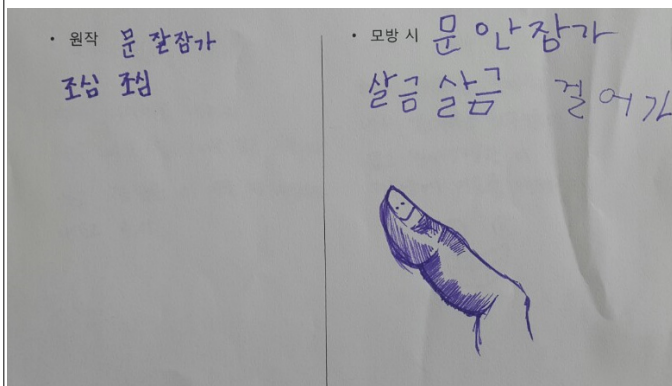 • 원작 문 잘잠가
조심 조심
• 모방 시 문 안잠가
살금 살금 걸어가